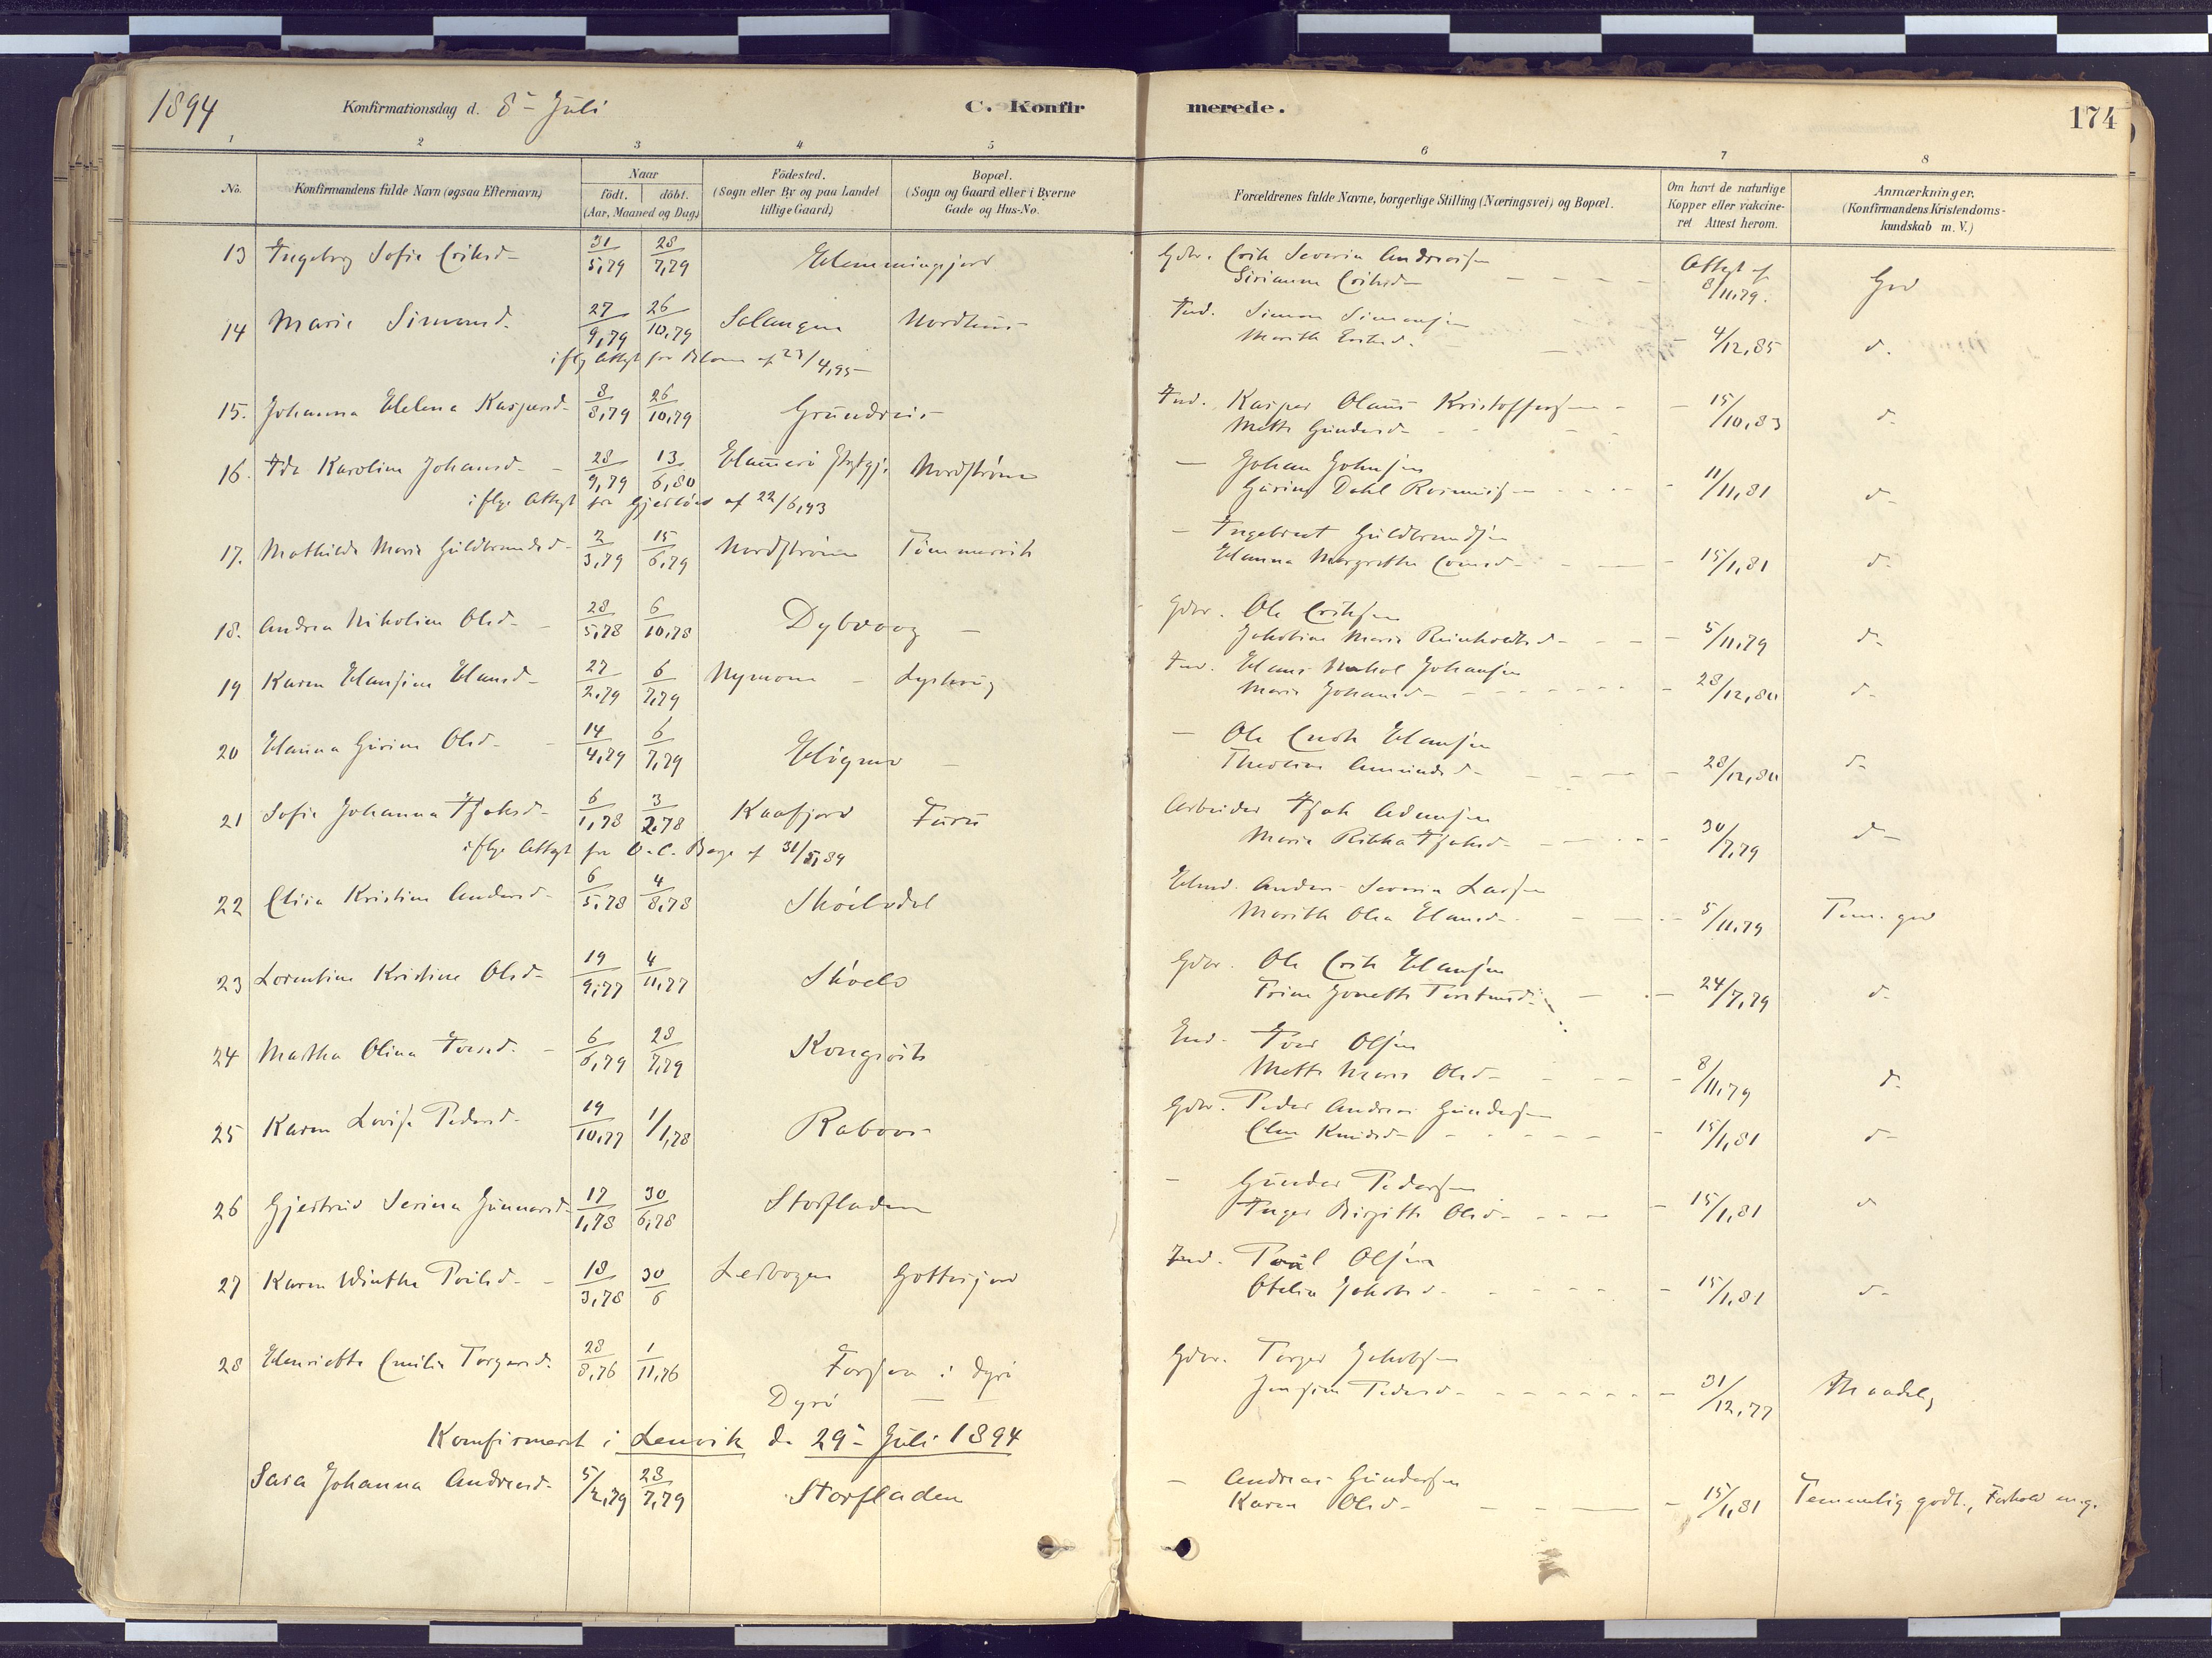 1894 Konfirmationsdag d. 8- Juli C. Konfirmerede. 174
1 2 3 4 5 6 7 8
No. Konfirmandens fulde Navn (ogsaa Efternavn) Naar födt. döbt. (Aar, Maaned og Dag) Födested. (Sogn eller By og paa Landet tillige Gaard) Bopæl. (Sogn og Gaard eller i Byerne Gade og Hus-No. Forældrenes fulde Navne, borgerlige Stilling (Næringsvei) og Bopæl. Om havt de naturlige Kopper eller vakcineret Attest herom. Anmærkninger. (Konfirmandens Kristendomskundskab m. V.)
13 Ingeborg Sofie Eriksd- 31/5,79 28/7,79 Hemmingsjord Gdbr. Erik Severin Andreasen
Sirianna Eriksd- Attest af 8/11,79. God
14 Marie Simonsd. 27/9,79 26/10,79 Salangen Nordhus Ind. Simon Simonsen
Marith 4/12,85 d.
iflg Attest fra af 23/4,95-
15. Johanna Helena Kaspersd- 8/8,79 26/10,79 Grundreis Ind. Kasper Olaus Kristoffersen
Mette Gundersd- 15/10,83 d-
16. Ida Karoline Johansd- 28/9,79 13/6,80 Nordstrøm - Johan Johnsen
Gurine Dahl 11/11,81 d-
iflge Attest fra af 22/6,93
17. Mathilde Marie Guldbrandsd- 2/3,79 15/6,79 Nordstrøm Tømmervik - Ingebret Guldbrandsen
Hanna Margrethe 15/1,81 d-
18. Andrea Nikoline Olsd- 28/5,78 6/10,78 Dybvaag - Gdbr. Ole Eriksen
Jakobine Marie Reinholdtsd- 5/11,79 d-
19 Karen Hansine Hansd- 27/2,79 6/7,79 Nymoen - Lysbø Ind. Hans Johansen
Marie Johansd- 28/12,80 d-
20 Hanna Gurine Olsd- 14/4,79 6/7,79 Høgmo - - Ole Hansen
Amundsd- 28/12,80 d-
21 Sofie Johanna Isaksd- 6/1,78 3/2,78 Kaafjord Furu Arbeider Isak Adamsen
Marie Rikka Isaksd- 30/7,79 d-
iflge Attest fra af 31/5,89
22 Elisa Kristine Andersd- 6/5,78 4/8,78 Anders Severin Larsen
Marith Olea Hansd- 5/11,79 Tem. god
23 Lorentine Kristine Olsd- 19/9,77 4/11,77 Gdbr. Ole Erik Hansen
Trine Jonette 24/7,79 d-
24 Martha Olina Iversd. 6/6,79 28/7,79 Kongsvik Ind. Iver Olsen
Mette Marie Olsd- 8/11,79 d-
25 Karen Lovise Pedersd- 19/10,77 1/1,78 Gdbr. Peder Andreas Gundersen
Elen Knudsd- 15/1,81 d-
26 Gjertrud Serina Gunnarsd- 17/1,78 30/6,78 Storfladen - Gunder Pedersen
Inger Birgitte Olsd- 15/1,81 d-
27 Karen Winthe Poulsd- 18/3,78 30/6 Leibogen Gottesjord Ind. Poul Olsen
Otelia Jakobsd. 15/1,81 d-
28 Henriette Emilie Torgersd. 28/8,76 1/11,76 Forsen i Dyrø Gdbr. Torger Jakobsen
Dyrø - Jensine Pedersd- 31/12,77 Maadelig
Konfirmeret i Lenvik d. 29- Juli 1894
Sara Johanna Andreasd- 5/2,79 28/7,79 Storfladen - Andreas Gundersen
Karen Olsd- 15/1,81 Temmelig godt., Forhold m.g.